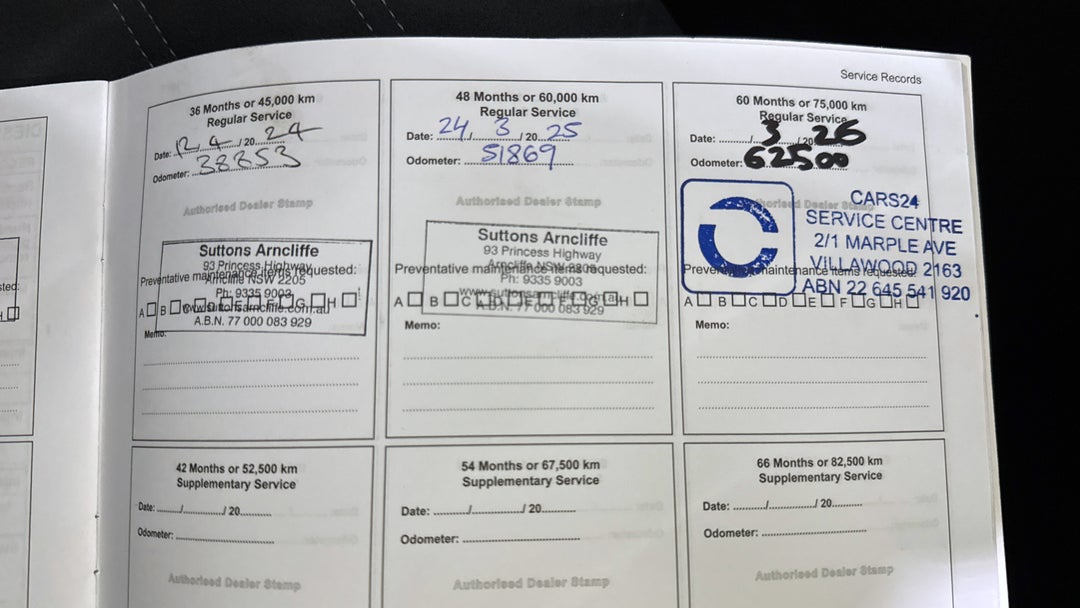 Service Records
36 Months or 45,000 km
Regular Service
Date: 12/4/20 24
Odometer: 38353
Authorised Dealer Stamp
Suttons Arncliffe
93 Princess Highway
Arncliffe NSW 2205
Preventative maintenance items requested:
Ph: 9335 9003
A B C D E F G H
www.suttonsarncliffe.com.au
A.B.N. 77 000 083 929
Memo:
48 Months or 60,000 km
Regular Service
Date: 24/3/20 25
Odometer: 51869
Authorised Dealer Stamp
Suttons Arncliffe
93 Princess Highway
Arncliffe NSW 2205
Preventative maintenance items requested:
Ph: 9335 9003
www.suttonsarncliffe.com.au
A B C D E F G H
A.B.N. 77 000 083 929
Memo:
60 Months or 75,000 km
Regular Service
Date: ....../3/20 26
Odometer: 62500
Authorised Dealer Stamp
CARS24
SERVICE CENTRE
2/1 MARPLE AVE
VILLAWOOD 2163
Preventative maintenance items requested:
ABN 22 645 541 920
A B C D E F G H
Memo:
42 Months or 52,500 km
Supplementary Service
Date: ....../....../ 20......
Odometer: ......
Authorised Dealer Stamp
54 Months or 67,500 km
Supplementary Service
Date: ....../....../ 20......
Odometer: ......
Authorised Dealer Stamp
66 Months or 82,500 km
Supplementary Service
Date: ....../....../ 20......
Odometer: ......
Authorised Dealer Stamp